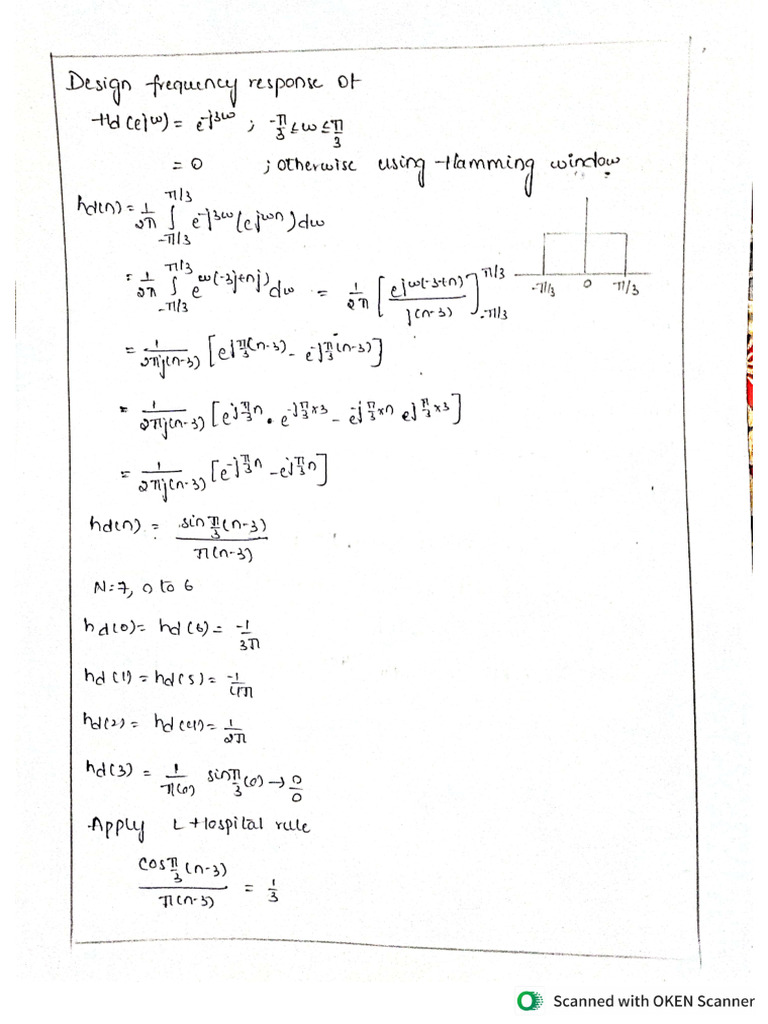 Design frequency response of
Hd(e^jω) = e^-j3ω ; -π/3 ≤ ω ≤ π/3
= 0 ; otherwise using Hamming window
hd(n) = 1/2π ∫_{-π/3}^{π/3} e^-j3ω (e^jωn) dω
= 1/2π ∫_{-π/3}^{π/3} e^ω(-3j+nj) dω = 1/2π [e^jω(-3+n) / j(n-3)]_{-π/3}^{π/3}
-π/3 0 π/3
= 1/2πj(n-3) [e^jπ/3(n-3) - e^-jπ/3(n-3)]
= 1/2πj(n-3) [e^jπ/3n · e^-jπ/3×3 - e^-jπ/3×n e^jπ/3×3]
= 1/2πj(n-3) [e^-jπ/3n - e^jπ/3n]
hd(n) = sin π/3(n-3) / π(n-3)
N=7, 0 to 6
hd(0) = hd(6) = -1/3π
hd(1) = hd(5) = -1/4π
hd(2) = hd(4) = 1/2π
hd(3) = 1/π(0) sin π/3(0) → 0/0
Apply L Hospital rule
cos π/3(n-3) / π(n-3) = 1/3
Scanned with OKEN Scanner